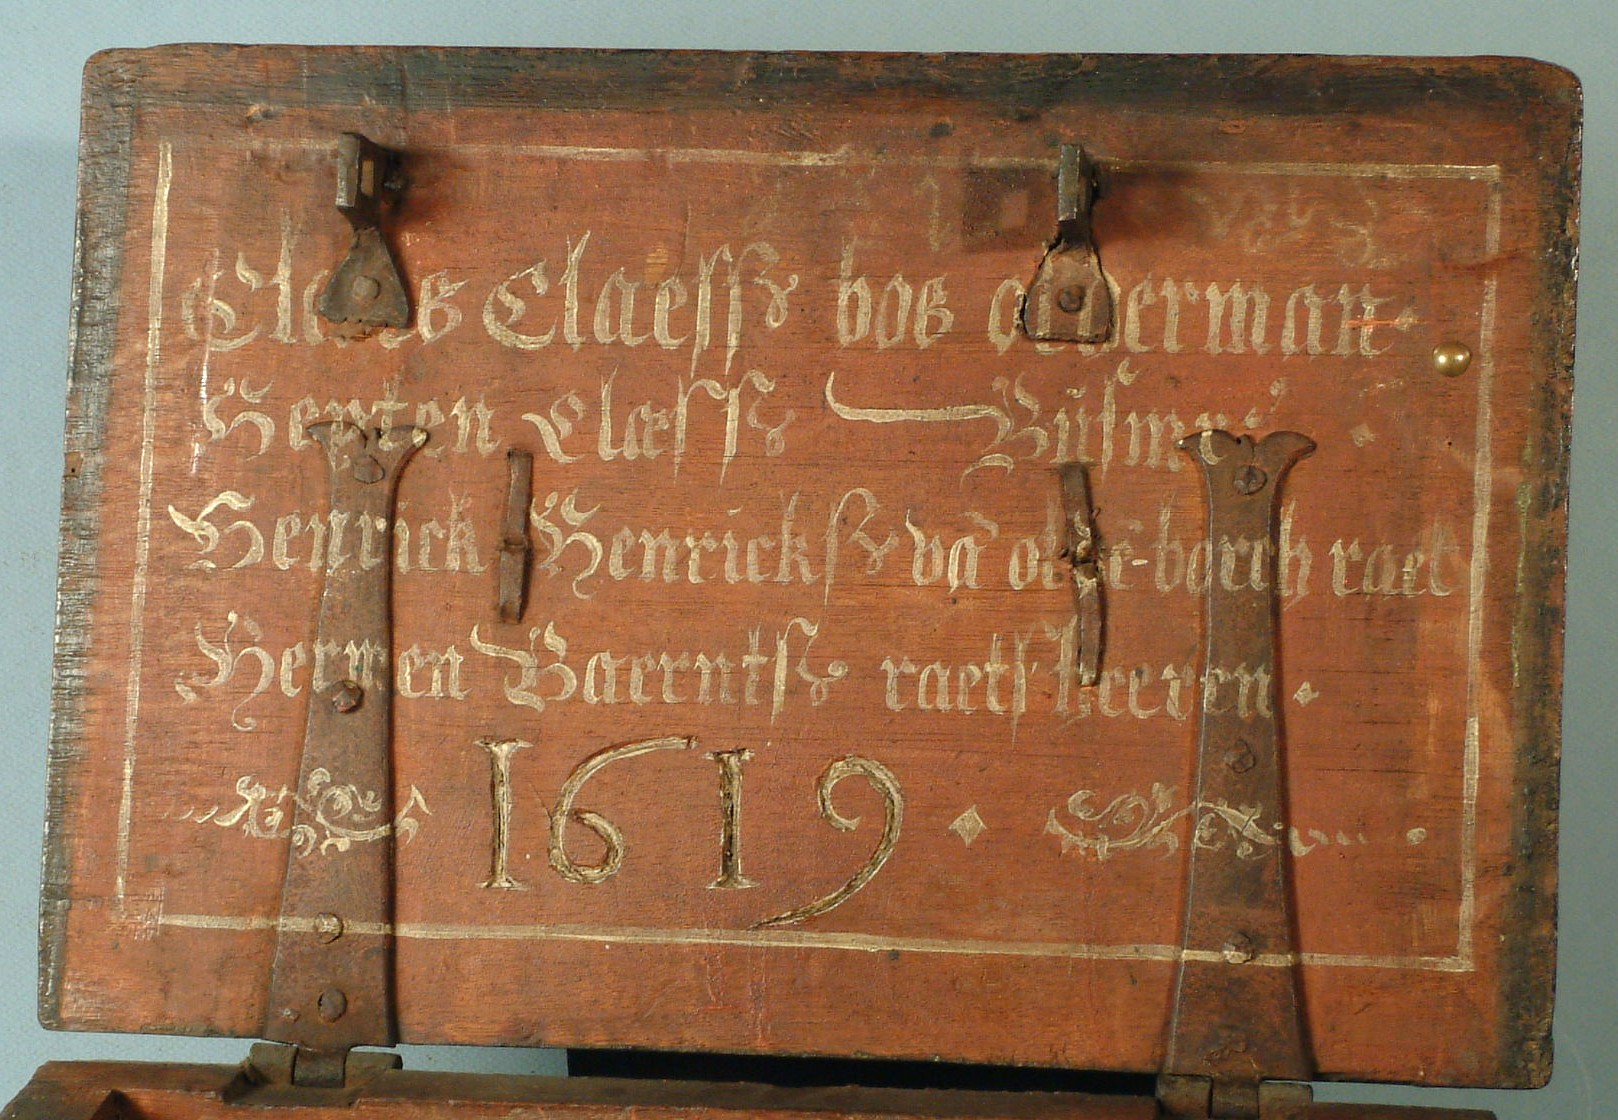 Claes Claess bos olderman
Heyten Claess Busme
Henrick Henricks vā oldēborch raet
Hermen Baernts raets heeren
1619